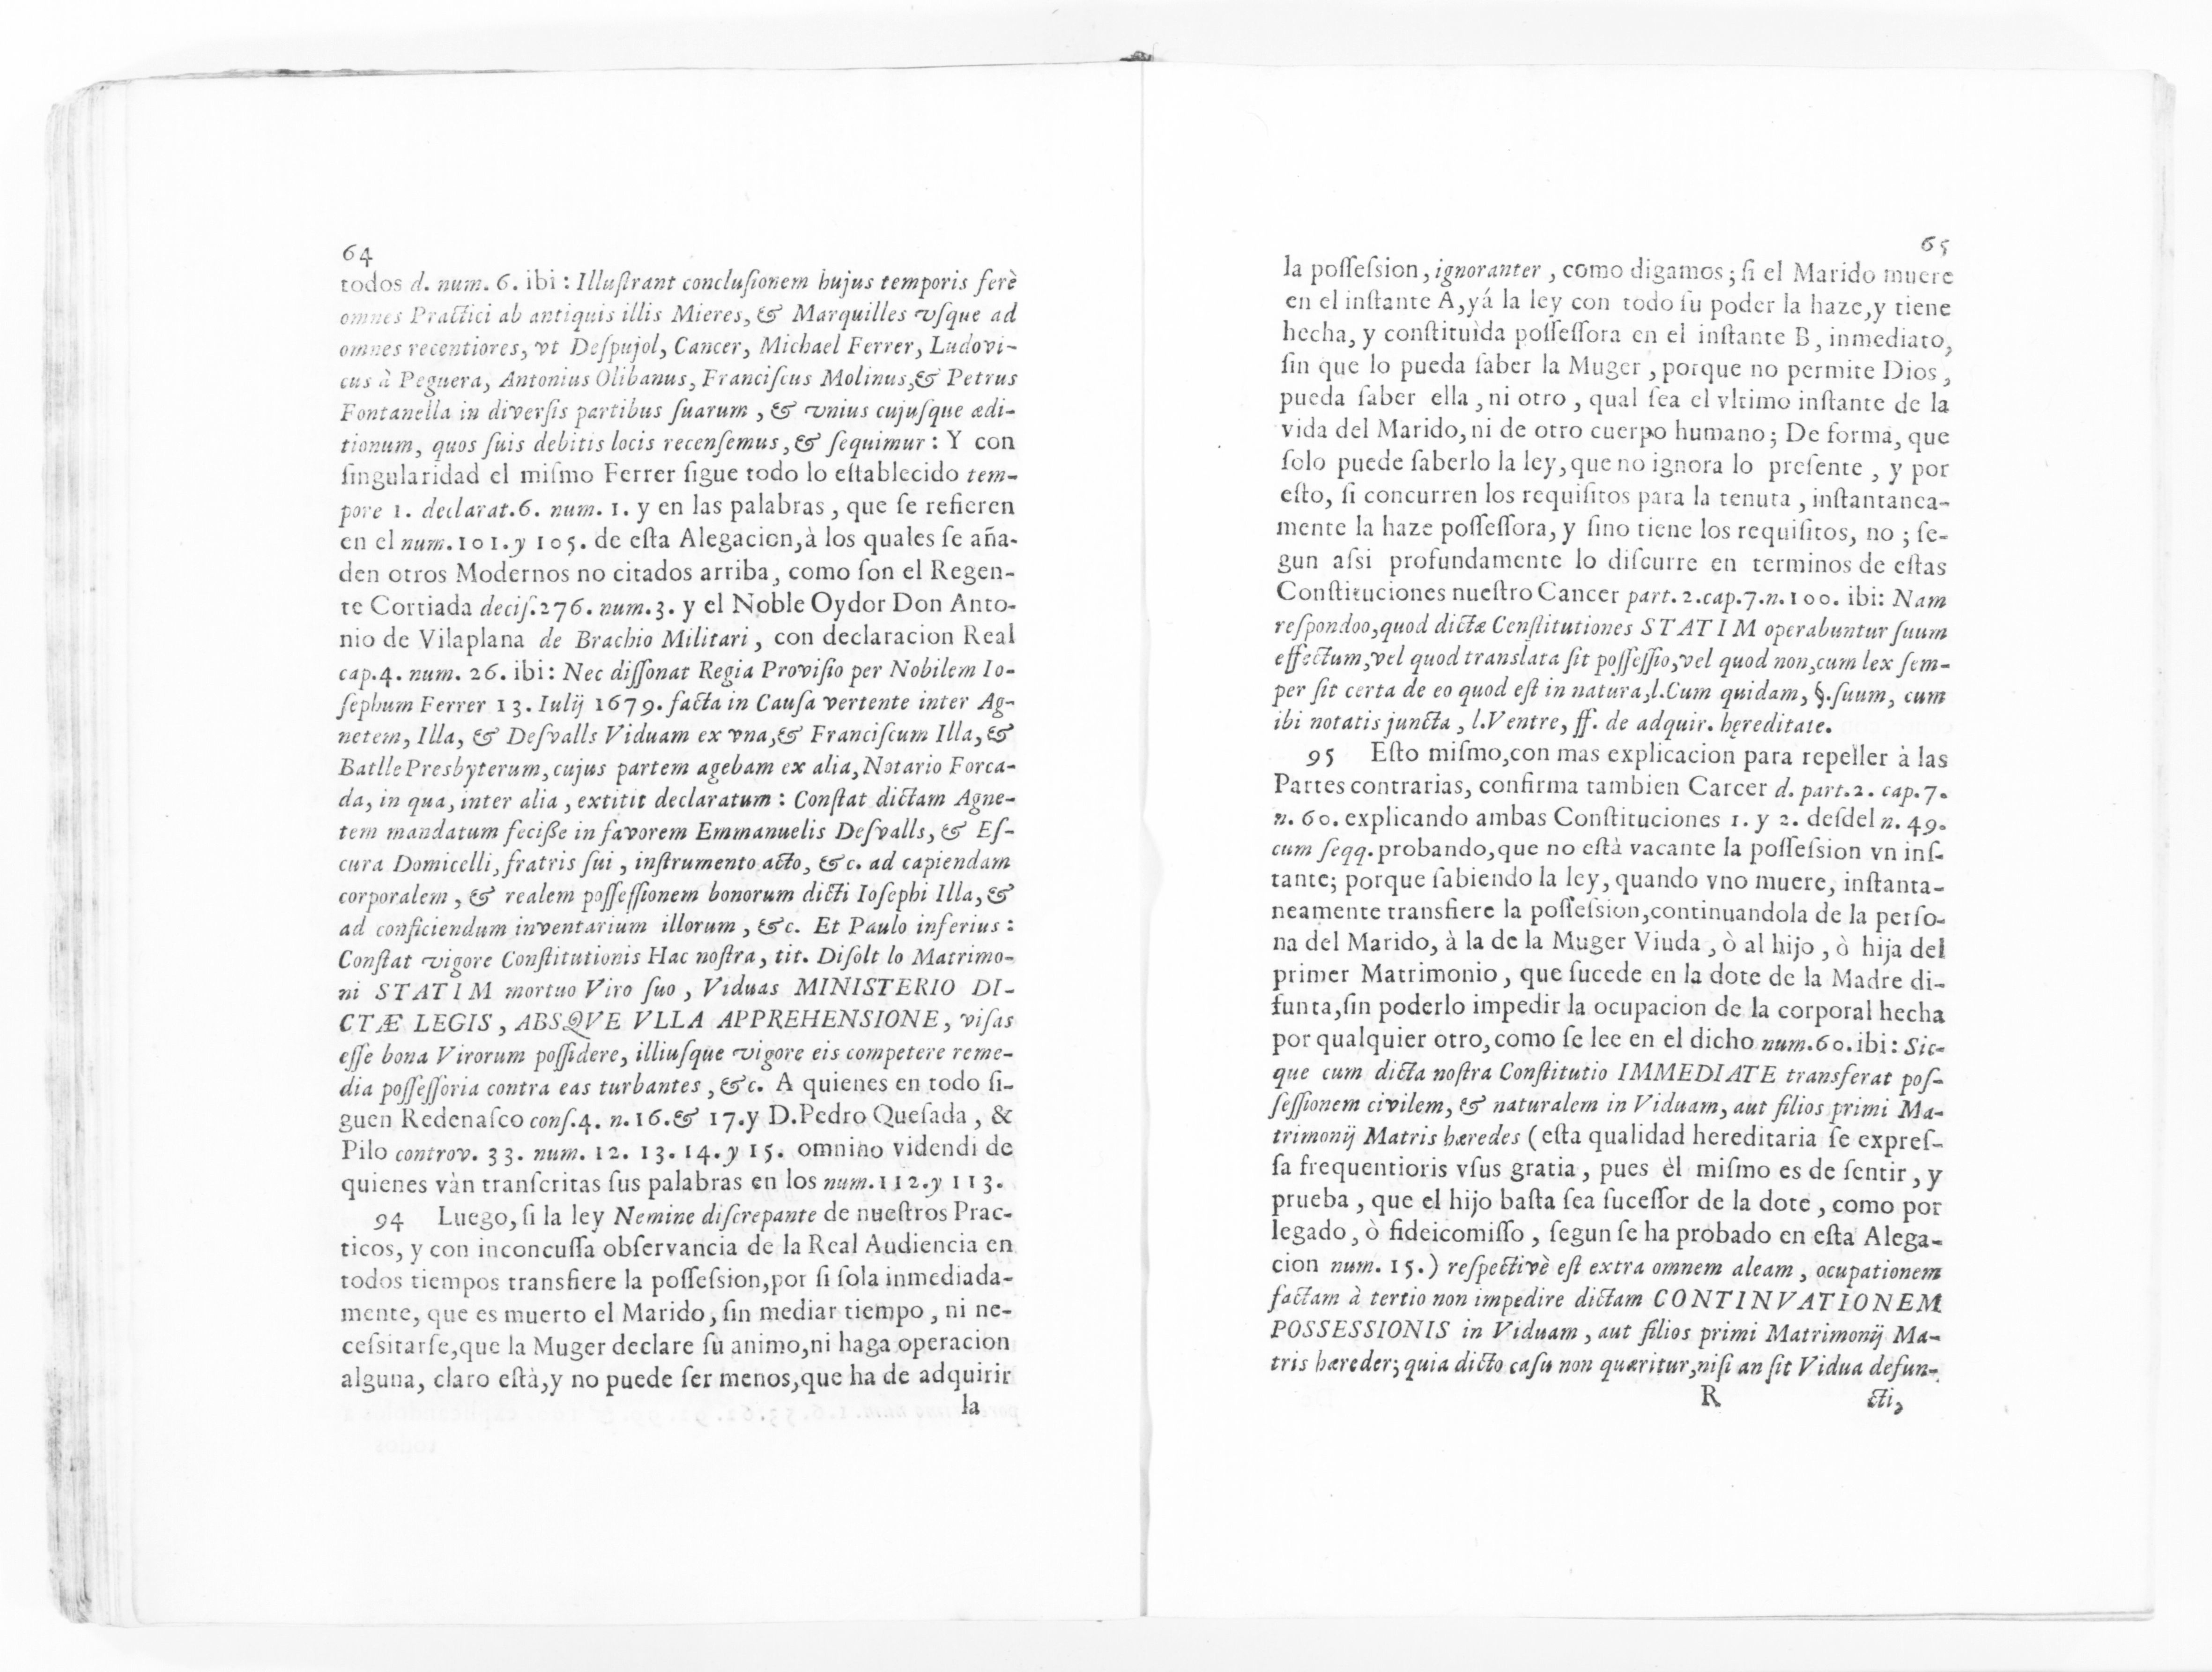 64
todos d. num. 6. ibi : Illuſtrant concluſionem hujus temporis ferè
omnes Practici ab antiquis illis Mieres, & Marquilles vſque ad
omnes recentiores, vt Deſpujol, Cancer, Michael Ferrer, Ludovi-
cus à Peguera, Antonius Olibanus, Franciſcus Molinus,& Petrus
Fontanella in diverſis partibus ſuarum , & vnius cujuſque ædi-
tionum, quos ſuis debitis locis recenſemus, & ſequimur : Y con
ſingularidad el miſmo Ferrer ſigue todo lo eſtablecido tem-
pore 1. declarat.6. num. 1. y en las palabras , que ſe refieren
en el num.101.y 105. de eſta Alegacion,à los quales ſe aña-
den otros Modernos no citados arriba, como ſon el Regen-
te Cortiada deciſ.276. num.3. y el Noble Oydor Don Anto-
nio de Vilaplana de Brachio Militari , con declaracion Real
cap.4. num. 26. ibi: Nec diſſonat Regia Proviſio per Nobilem Io-
ſephum Ferrer 13. Iulij 1679. facta in Cauſa vertente inter Ag-
netem, Illa, & Deſvalls Viduam ex vna,& Franciſcum Illa, &
Batlle Presbyterum, cujus partem agebam ex alia, Notario Forca-
da, in qua, inter alia , extitit declaratum : Conſtat dictam Agne-
tem mandatum feciße in favorem Emmanuelis Deſvalls, & Eſ-
cura Domicelli, fratris ſui , inſtrumento acto, &c. ad capiendam
corporalem , & realem poſſeſſionem bonorum dicti Ioſephi Illa, &
ad conficiendum inventarium illorum , &c. Et Paulo inferius :
Conſtat vigore Conſtitutionis Hac noſtra, tit. Diſolt lo Matrimo-
ni STATIM mortuo Viro ſuo , Viduas MINISTERIO DI-
CTÆ LEGIS, ABSQVE VLLA APPREHENSIONE, viſas
eſſe bona Virorum poſſidere, illiuſque vigore eis competere reme-
dia poſſeſſoria contra eas turbantes , &c. A quienes en todo ſi-
guen Redenaſco conſ.4. n.16.& 17.y D.Pedro Queſada , &
Pilo controv. 33. num. 12. 13. 14.y 15. omnino videndi de
quienes vàn tranſcritas ſus palabras en los num.112.y 113.
94 Luego, ſi la ley Nemine diſcrepante de nueſtros Prac-
ticos, y con inconcuſſa obſervancia de la Real Audiencia en
todos tiempos transfiere la poſſeſsion,por ſi ſola inmediada-
mente, que es muerto el Marido, ſin mediar tiempo , ni ne-
ceſsitarſe,que la Muger declare ſu animo,ni haga operacion
alguna, claro eſtà,y no puede ſer menos,que ha de adquirir
la
65
la poſſeſsion, ignoranter , como digamos ; ſi el Marido muere
en el inſtante A,yá la ley con todo ſu poder la haze,y tiene
hecha, y conſtituìda poſſeſſora en el inſtante B, inmediato,
ſin que lo pueda ſaber la Muger , porque no permite Dios ,
pueda ſaber ella , ni otro , qual ſea el vltimo inſtante de la
vida del Marido, ni de otro cuerpo humano ; De forma, que
ſolo puede ſaberlo la ley, que no ignora lo preſente , y por
eſto, ſi concurren los requiſitos para la tenuta , inſtantanea-
mente la haze poſſeſſora, y ſino tiene los requiſitos, no ; ſe-
gun aſsi profundamente lo diſcurre en terminos de eſtas
Conſtituciones nueſtro Cancer part. 2.cap.7.n.100. ibi: Nam
reſpondoo,quod dictæ Cenſtitutiones STATIM operabuntur ſuum
effectum,vel quod translata ſit poſſeſſio,vel quod non,cum lex ſem-
per ſit certa de eo quod eſt in natura,l.Cum quidam, §.ſuum, cum
ibi notatis juncta , l.Ventre, ff. de adquir. hęreditate.
95 Eſto miſmo,con mas explicacion para repeller à las
Partes contrarias, confirma tambien Carcer d. part.2. cap.7.
n. 60. explicando ambas Conſtituciones 1. y 2. deſdel n. 49.
cum ſeqq. probando,que no eſtà vacante la poſſeſsion vn inſ-
tante; porque ſabiendo la ley, quando vno muere, inſtanta-
neamente transfiere la poſſeſsion,continuandola de la perſo-
na del Marido, à la de la Muger Viuda , ò al hijo , ò hija del
primer Matrimonio , que ſucede en la dote de la Madre di-
funta,ſin poderlo impedir la ocupacion de la corporal hecha
por qualquier otro,como ſe lee en el dicho num.60.ibi: Sic-
que cum dicta noſtra Conſtitutio IMMEDIATE transferat poſ-
ſeſſionem civilem, & naturalem in Viduam, aut filios primi Ma-
trimonij Matris hæredes ( eſta qualidad hereditaria ſe expreſ-
ſa frequentioris vſus gratia , pues èl miſmo es de ſentir , y
prueba , que el hijo baſta ſea ſuceſſor de la dote , como por
legado , ò fideicomiſſo , ſegun ſe ha probado en eſta Alega-
cion num. 15.) reſpectivè eſt extra omnem aleam , ocupationem
factam à tertio non impedire dictam CONTINVATIONEM
POSSESSIONIS in Viduam , aut filios primi Matrimonij Ma-
tris hæreder; quia dicto caſu non quæritur,niſi an ſit Vidua defun-
R cti,